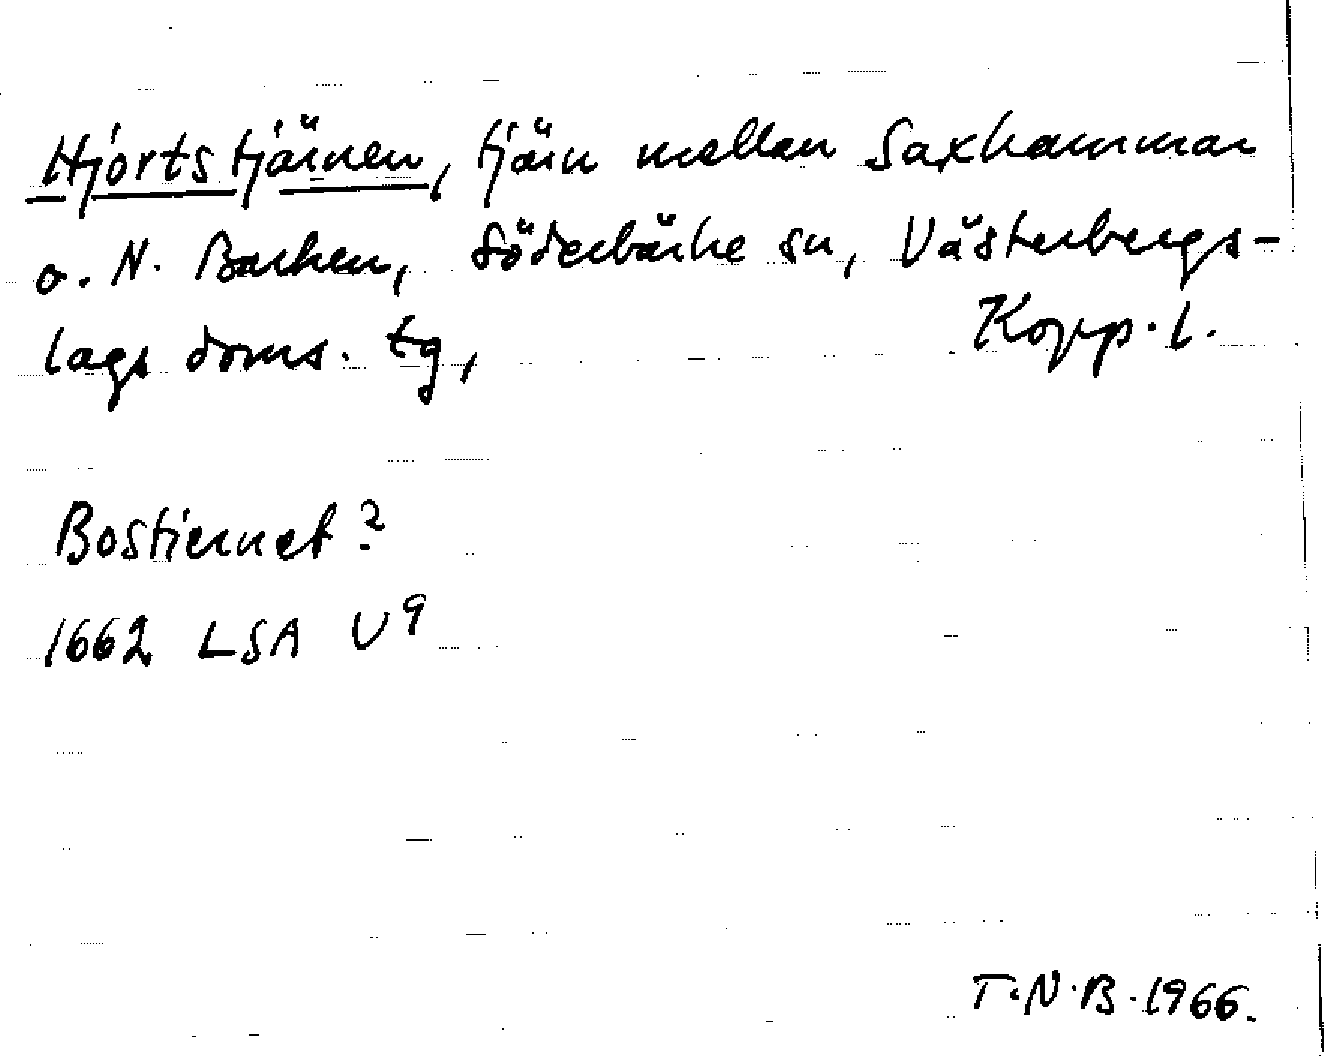 Hjortstjärnen, tjärn mellan Saxhammar
o. N. Barken, Söderbärke sn, Västerbergs-
lags doms. tg, Kopp. l.
Bostiernet?
1662 LSA U9
T.N.B. 1966.